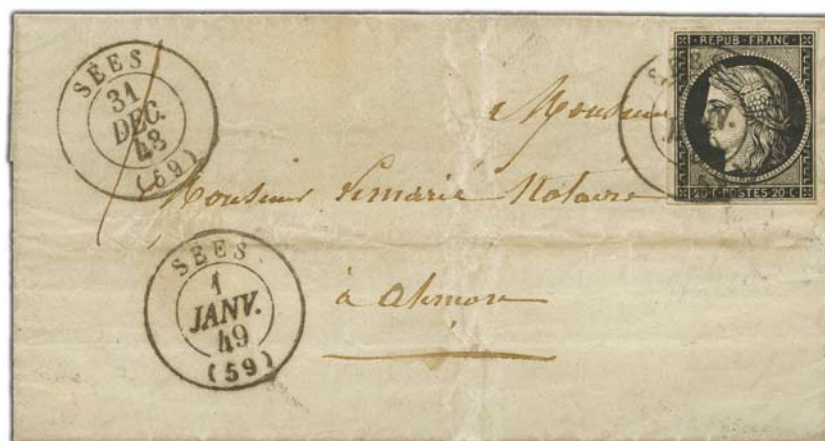 SÉES
31
DEC.
48
(59)
REPUB. FRANC.
20 C. POSTES 20 C
JANV.
Monsieur
Monsieur Lemarié Notaire
à
SÉES
1
JANV.
49
(59)